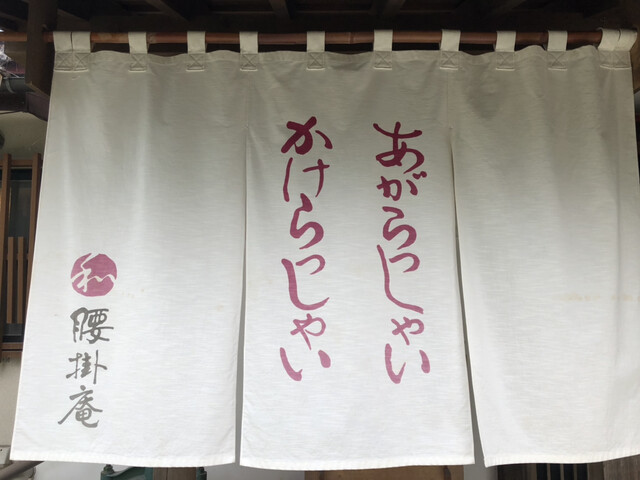 あがらっしゃい
かけらっしゃい
和
腰掛庵